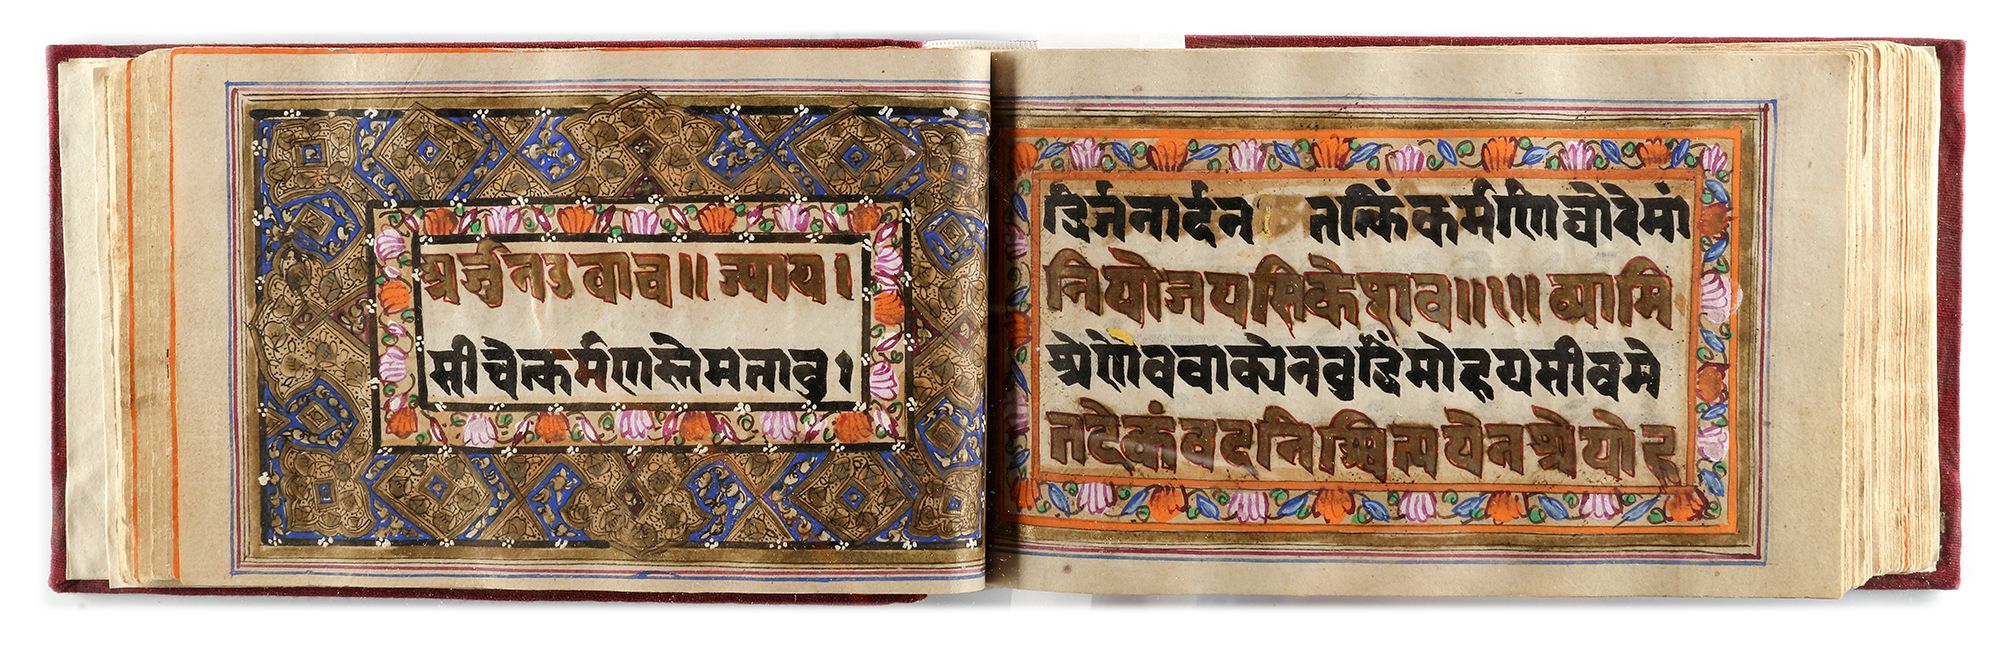 अर्जुनउवाच॥ज्याय।
सीचेत्कर्मणस्तेमताबु।
र्द्धिर्जनार्दन तत्किंकर्मणिघोरेमां
नियोजयसिकेशव॥१॥व्यामि
श्रेणैववाक्येनबुद्धिंमोहयसीवमे
तदेकंवदनिश्चित्ययेनश्रेयोह